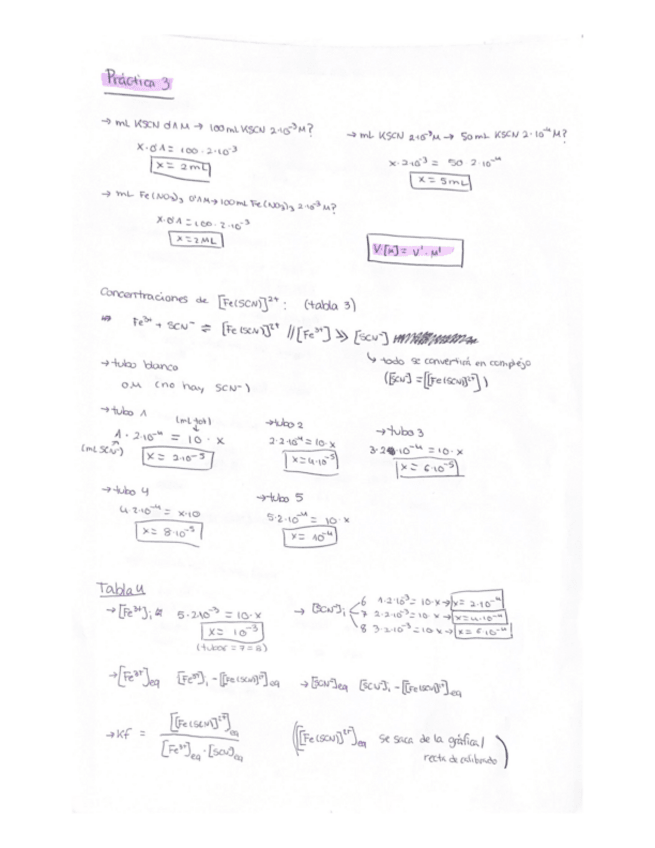 Práctica 3
→ mL KSCN 0'1 M → 100 mL KSCN 2·10⁻³ M?
X·0'1 = 100·2·10⁻³
X = 2 mL
→ mL KSCN 2·10⁻³ M → 50 mL KSCN 2·10⁻⁴ M?
X·2·10⁻³ = 50·2·10⁻⁴
X = 5 mL
→ mL Fe(NO₃)₃ 0'1 M → 100 mL Fe(NO₃)₃ 2·10⁻³ M?
X·0'1 = 100·2·10⁻³
X = 2 mL
V·[M] = V'·M'
Concentraciones de [Fe(SCN)]²⁺: (tabla 3)
Fe³⁺ + SCN⁻ ⇌ [Fe(SCN)]²⁺ // [Fe³⁺] >> [SCN⁻]
↳ todo se convertirá en complejo
([SCN⁻] = [[Fe(SCN)]²⁺])
→ tubo blanco
0 M (no hay SCN⁻)
→ tubo 1
(mL tot)
1·2·10⁻⁴ = 10·x
(mL SCN⁻)
x = 2·10⁻⁵
→ tubo 2
2·2·10⁻⁴ = 10·x
x = 4·10⁻⁵
→ tubo 3
3·2·10⁻⁴ = 10·x
x = 6·10⁻⁵
→ tubo 4
4·2·10⁻⁴ = x·10
x = 8·10⁻⁵
→ tubo 5
5·2·10⁻⁴ = 10·x
x = 10⁻⁴
Tabla 4
→ [Fe³⁺]i 5·2·10⁻³ = 10·x
x = 10⁻³
(tubo 6 = 7 = 8)
→ [SCN⁻]i
6 1·2·10⁻³ = 10·x → x = 2·10⁻⁴
7 2·2·10⁻³ = 10·x → x = 4·10⁻⁴
8 3·2·10⁻³ = 10·x → x = 6·10⁻⁴
→ [Fe³⁺]eq [Fe³⁺]i - [[Fe(SCN)]²⁺]eq
→ [SCN⁻]eq [SCN⁻]i - [[Fe(SCN)]²⁺]eq
→ Kf = [[Fe(SCN)]²⁺]eq / [Fe³⁺]eq·[SCN⁻]eq
([[Fe(SCN)]²⁺]eq se saca de la gráfica/
recta de calibrado)